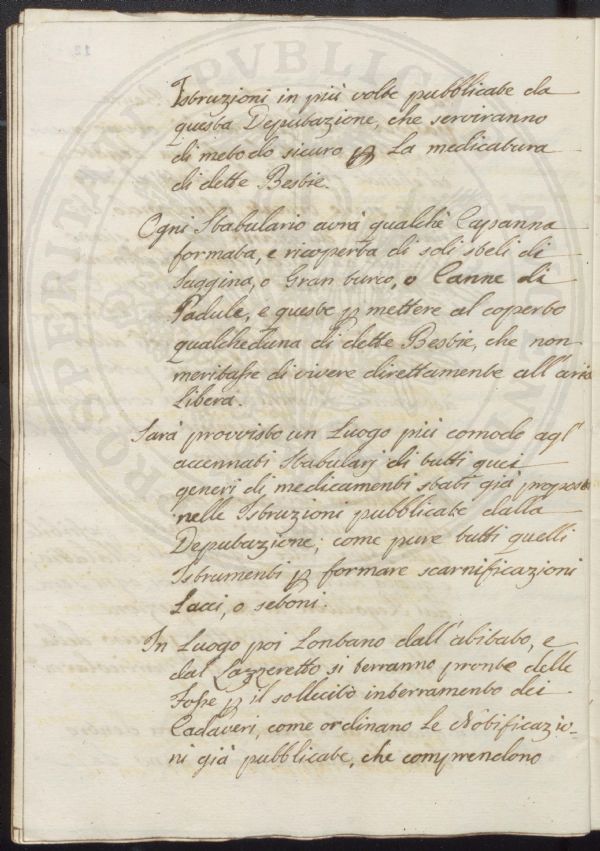 Istruzioni in più volte pubblicate da
questa Deputazione, che serviranno
di metodo sicuro ꝑ La medicatura
di dette Bestie.
Ogni Stabulario avrà qualchè Capanna
formata, e ricoperta di soli steli di
Saggina, o Gran turco, o Canne di
Padule, e queste ꝑ mettere al coperto
qualcheduna di dette Bestie, che non
meritasse di vivere direttamente all'aria
Libera.
Sarà provvisto un Luogo più comodo agl'
accennati Stabularj di tutti quei
generi di medicamenti stati già proposti
nelle Istruzioni pubblicate dalla
Deputazione; come pure tutti quelli
Istrumenti ꝑ formare scarnificazioni
Lacci, o setoni.
In Luogo poi Lontano dall'abitato, e
dal Lazzeretto si terranno pronte delle
Fosse ꝑ il sollecito interramento dei
Cadaveri, come ordinano Le Notificazio-
ni già pubblicate, che comprendono
PROSPERITATI PUBLICAE